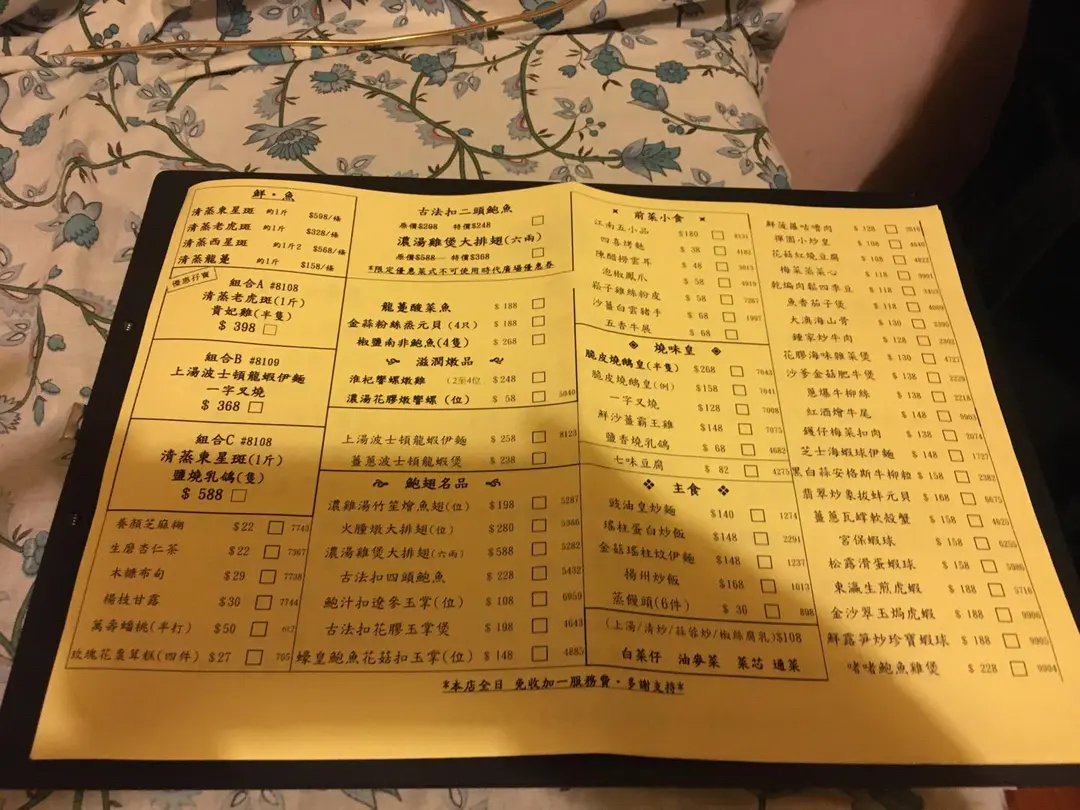 鮮·魚
清蒸東星斑 約1斤 $598/條
清蒸老虎斑 約1斤 $328/條
清蒸西星斑 約1斤2 $568/條
清蒸龍躉 約1斤 $158/條
優惠行賞
組合A #8108
清蒸老虎斑(1斤)
貴妃雞(半隻)
$ 398
組合B #8109
上湯波士頓龍蝦伊麵
一字叉燒
$ 368
組合C #8108
清蒸東星斑(1斤)
鹽燒乳鴿(隻)
$ 588
養顏芝麻糊 $22 7743
生磨杏仁茶 $22 7367
木糠布甸 $29 7738
楊枝甘露 $30 7744
萬壽蟠桃(半打) $50 612
玫瑰花棗茸糕(四件) $27 705
古法扣二頭鮑魚
原價$298 特價$248
濃湯雞煲大排翅(六兩)
原價$588 特價$368
*限定優惠菜式不可使用時代廣場優惠券
龍躉酸菜魚 $ 188
金蒜粉絲蒸元貝(4只) $ 188
椒鹽南非鮑魚(4隻) $ 268
滋潤燉品
淮杞響螺燉雞 (2至4位 $ 248
濃湯花膠燉響螺(位) $ 58 5040
上湯波士頓龍蝦伊麵 $ 258 8123
薑蔥波士頓龍蝦煲 $ 238
鮑翅名品
濃雞湯竹笙燴魚翅(位) $ 198 5287
火腫燉大排翅(位) $ 280 5366
濃湯雞煲大排翅(六兩) $ 588 5282
古法扣四頭鮑魚 $ 228 5432
鮑汁扣遼參玉掌(位) $ 108 6959
古法扣花膠玉掌煲 $ 198 4643
蠔皇鮑魚花菇扣玉掌(位) $ 148 4885
前菜小食
江南五小品 $180 8131
四喜烤麩 $ 38 4182
陳醋撈雲耳 $ 48 3013
泡椒鳳爪 $ 58 4919
菘子雞絲粉皮 $ 58 7267
沙薑白雲豬手 $ 68 1997
五香牛展 $ 68
燒味皇
脆皮燒鵝皇(半隻) $268 7043
脆皮燒鵝皇(例) $158 7041
一字叉燒 $128 7008
鮮沙薑霸王雞 $148 7075
鹽香燒乳鴿 $ 68 4682
七味豆腐 $ 82 4275
主食
豉油皇炒麵 $140 1274
瑤柱蛋白炒飯 $148 2291
金菇瑤柱炆伊麵 $148 1237
楊州炒飯 $168 1613
蒸饅頭(6件) $ 36 898
(上湯/清炒/蒜蓉炒/椒絲腐乳)$108
白菜仔 油麥菜 菜芯 通菜
鮮菠蘿咕嚕肉 $ 128
禪園小炒皇 $ 108
花菇紅燒豆腐 $ 108 4022
梅菜蒸菜心 $ 118 9901
乾煸肉鬆四季豆 $ 118
魚香茄子煲 $ 118 4009
大澳海山骨 $ 130
鍾家炒牛肉 $ 128 2302
花膠海味雜菜煲 $ 130 4727
沙爹金菇肥牛煲 $ 138 2220
蔥爆牛柳絲 $ 138 2218
紅酒燴牛尾 $ 148 9003
鑊仔梅菜扣肉 $ 138 2074
芝士海蝦球伊麵 $ 148 1727
黑白蒜安格斯牛柳粒 $ 158 2382
翡翠炒象拔蚌元貝 $ 168 6675
薑蔥瓦罉軟殼蟹 $ 158 4625
宮保蝦球 $ 158 6255
松露滑蛋蝦球 $ 158 5986
東瀛生煎虎蝦 $ 188 5710
金沙翠玉焗虎蝦 $ 188 9906
鮮露筍炒珍寶蝦球 $ 188 9905
啫啫鮑魚雞煲 $ 228 9904
*本店全日 免收加一服務費·多謝支持*